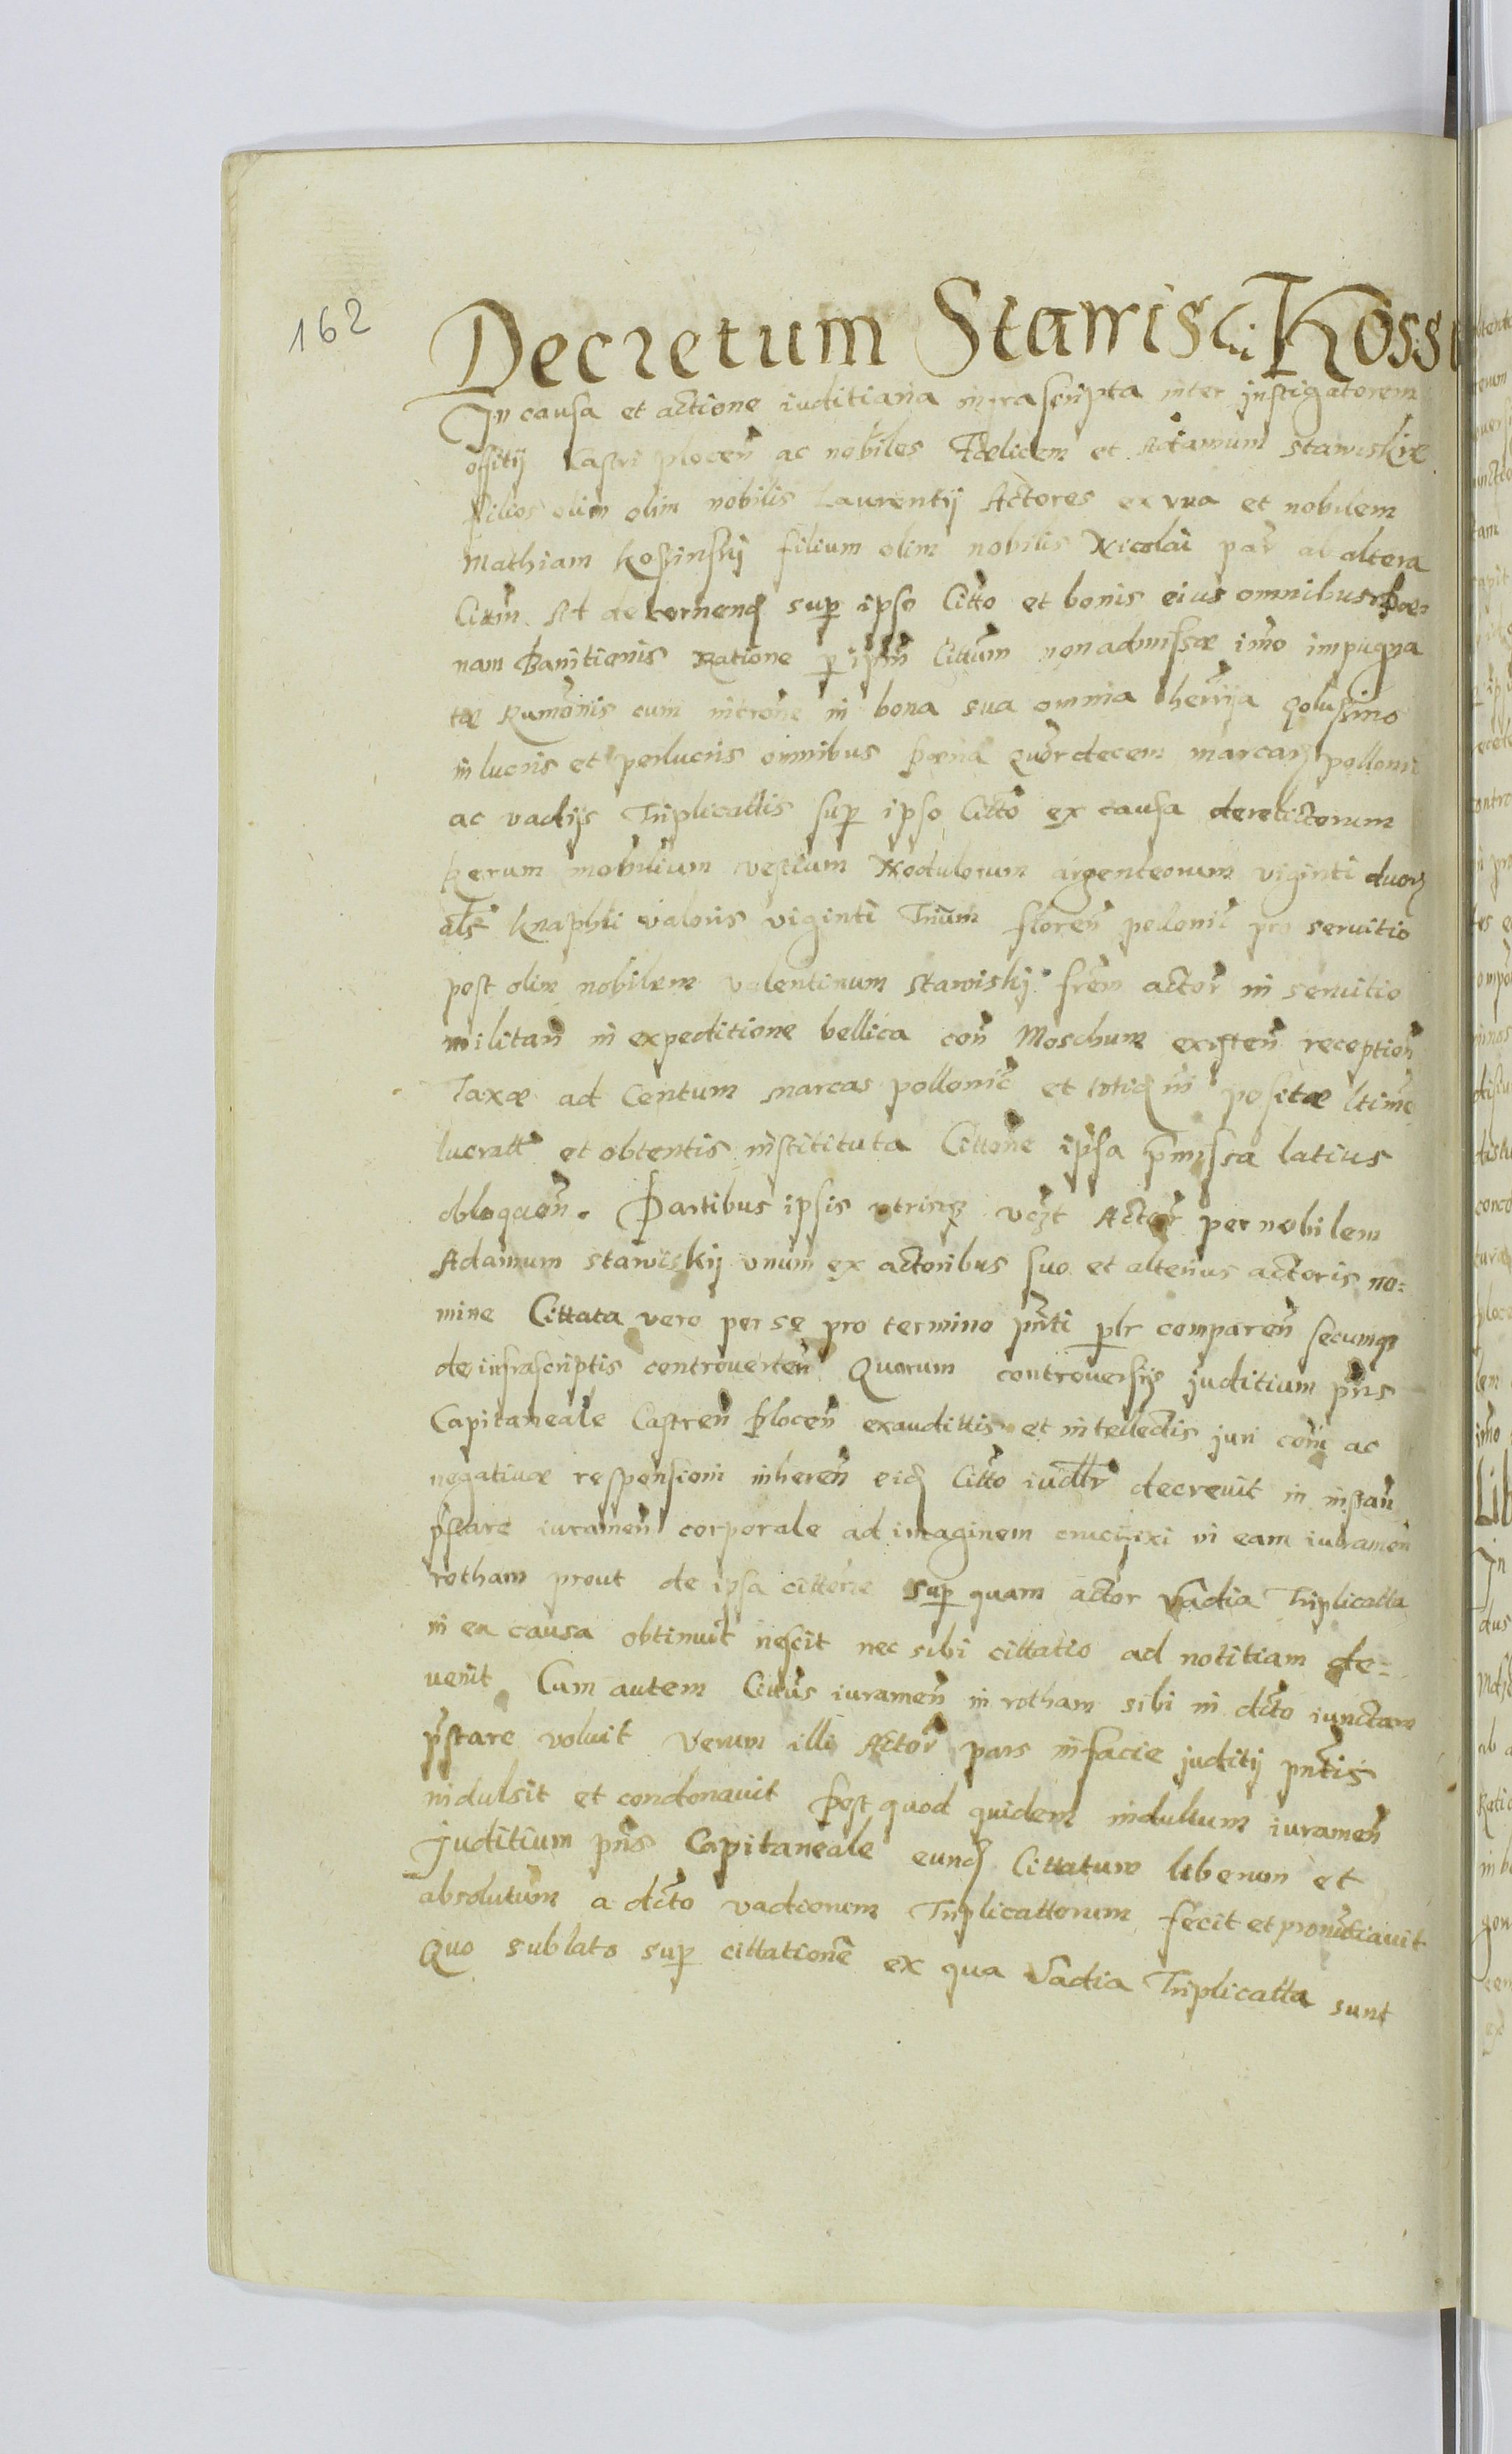 162
Decretum Stawisci Koss
In causa et actione iuditiaria infrascripta inter jnstigatorem
offitij Castri plocen̄ ac nobiles Fœlicem et Adamum stawiskie
filios olim olim nobilis Laurentij Actores ex vna et nobilem
Mathiam kossinskij filium olim nobilis Nicolai par ab altera
Cittm̄ Ad decernend sup ipso Citto et bonis eius omnibus pœ
nam Banitionis Ratione p ipm̄ Cittum non admissæ imo impugna
tæ Rumōnis cum intrōne in bona sua omnia
in lucris et perlucris omnibus pœna quordecem marcarꝫ polloni
ac vadijs Triplicattis sup ipso Citto ex causa derelictorum
Rerum mobilium vestium Nodulorum argenteorum viginti duorꝫ
als knaphli valoris viginti Trium floren̄ polloni pro seruitio
post olim nobilem valentinum stawiskij frem̄ actor̄ in seruitio
militan̄ in expeditione bellica con̄ Moschum existen̄ reception̄
Taxæ ad Centum marcas pollonic̄ et totidꝫ in positæ ltime
lucratt et obtentis instititutа Cittōne ipsa pmissa latius
obloquen̄. Partibus ipsis utrisqꝫ vꝫt Actor̄ per nobilem
Adamum stawiskij vnum ex actoribus suo et alterius actoris no=
mine Cittata vero per se pro termino pn̄ti plr comparen̄ secumqꝫ
de infrascriptis controuerten̄ Quorum controuersijs juditium pn̄s
Capitaneale Castren̄ plocen̄ exaudittis et intellectis juri com̄ ac
negatiuæ responsioni inheren̄ eidꝫ Citto iudltr decreuit in instan̄
pstare iuramen̄ corporale ad imaginem crucifixi in eam iuramen̄
rotham prout de ipsa cittōne sup quam actor vadia Triplicatta
in ea causa obtinuit nescit nec sibi cittatio ad notitiam de=
uenit Cum autem Cittus iuramen̄ in rotham sibi in dcto iunctam
pstare voluit Verum illi Actor̄ pars in facie juditij pn̄tis
indulsit et condonauit post quod quidem indultum iuramen̄
Juditium pn̄s Capitaneale eundꝫ Cittatum liberum et
absolutum a dcto vadiorum Triplicattorum fecit et pronūtiauit
Quo sublato sup cittationē ex qua vadia Triplicatta sunt